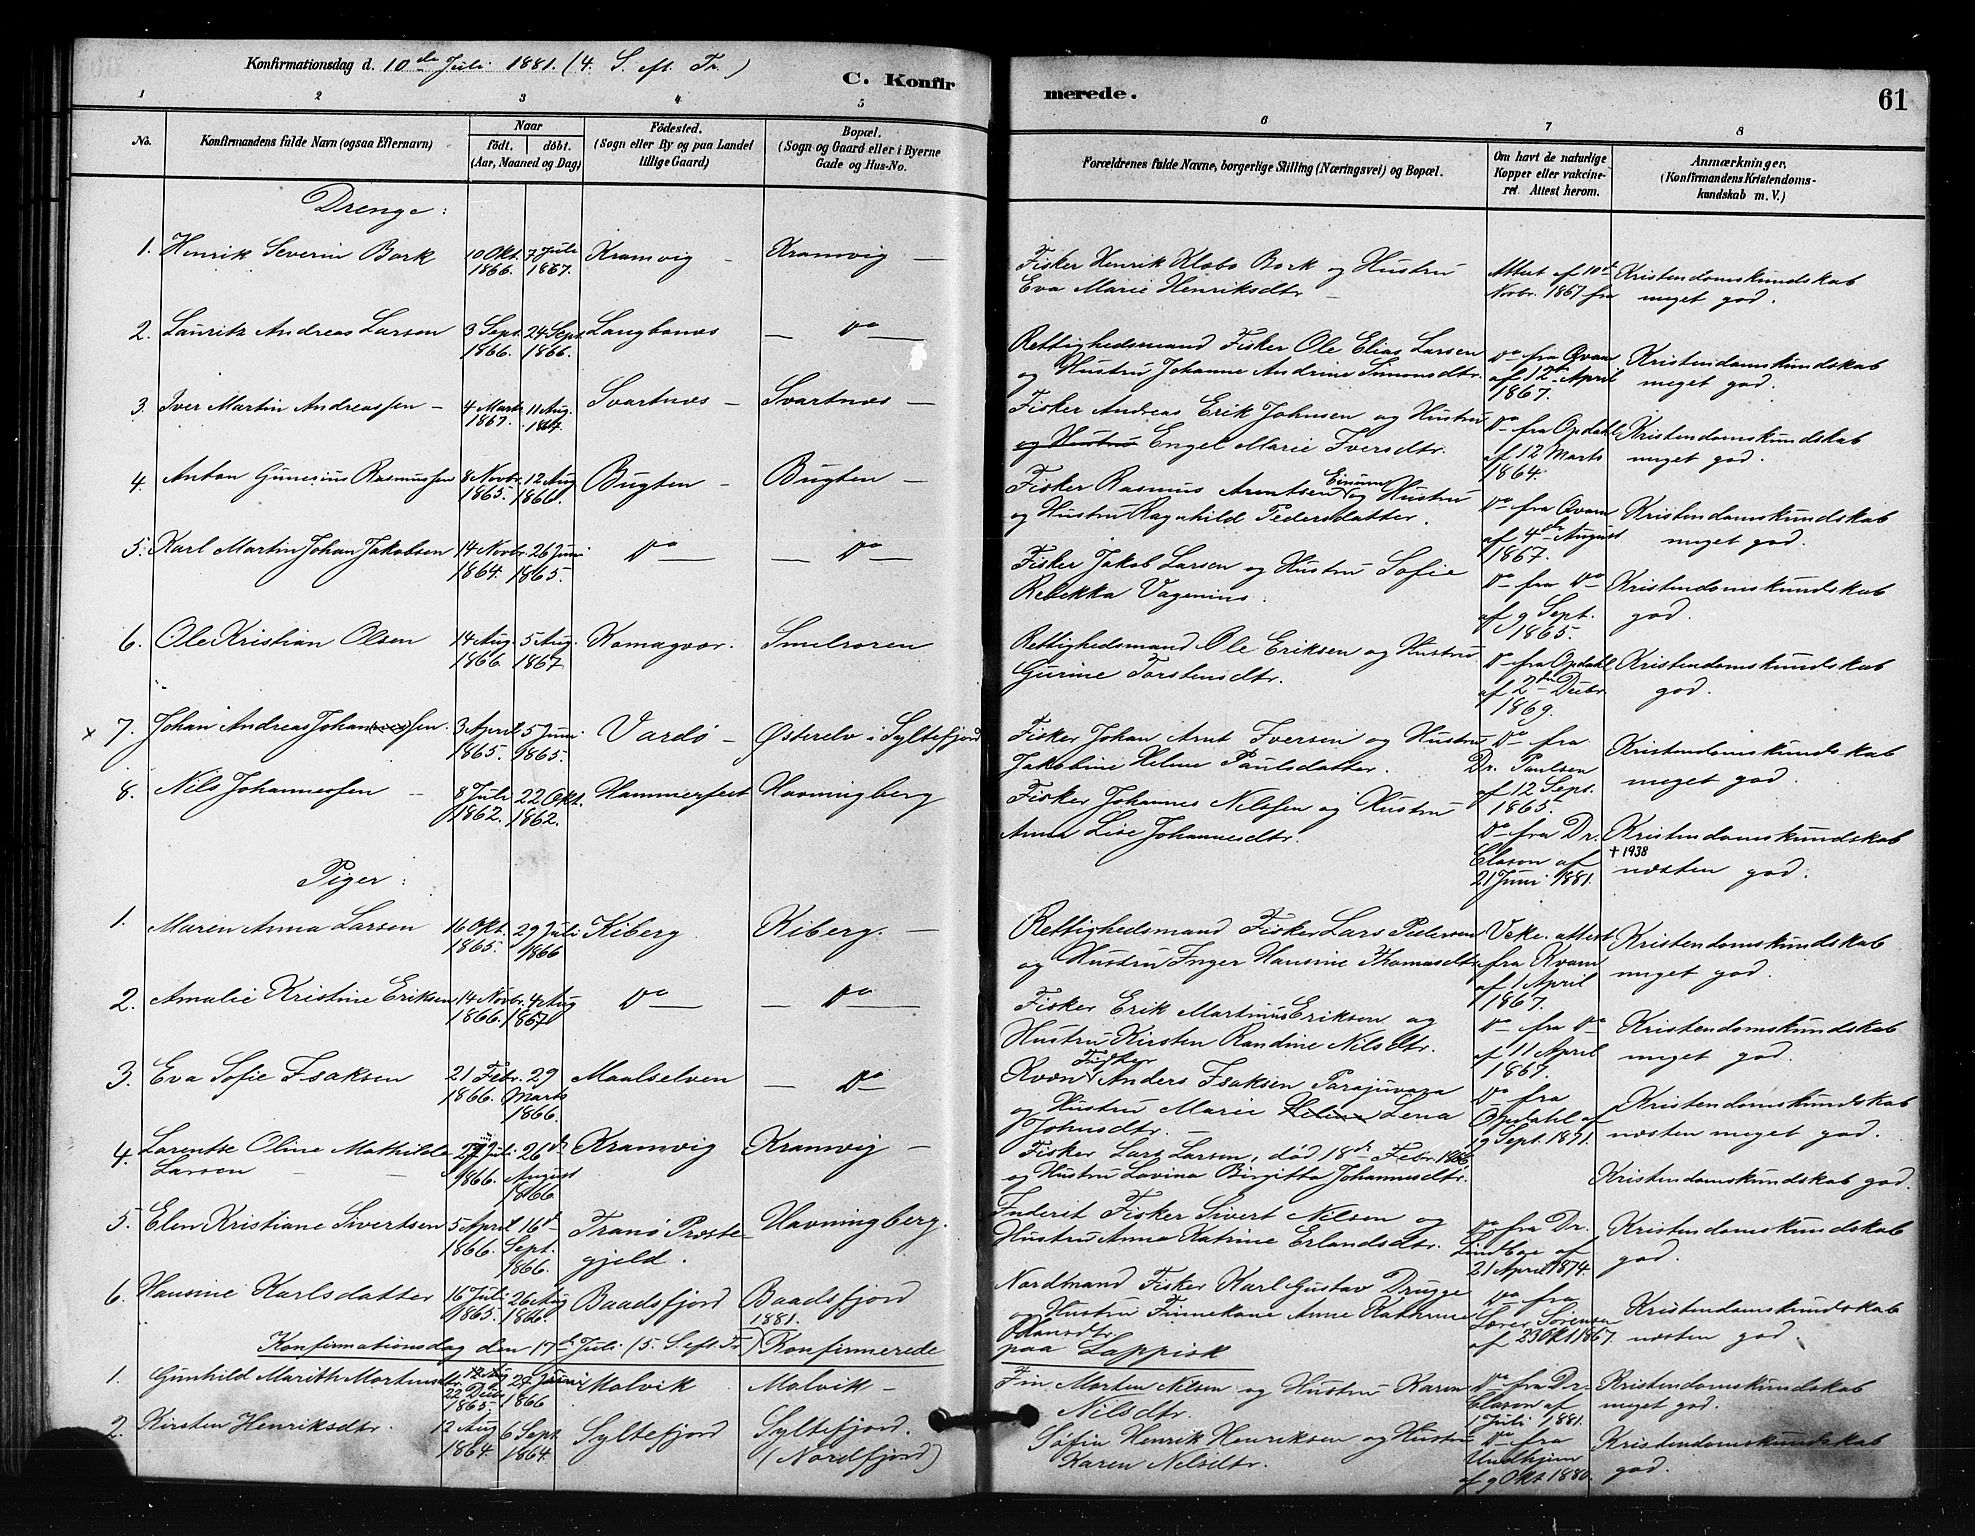 Konfirmationsdag d. 10de Juli 1881. (4. S. eft. Tr.)
C. Konfirmerede.
61
1 2 3 4 5 6 7 8
No.
Konfirmandens fulde Navn (ogsaa Efternavn)
Naar
födt. döbt.
(Aar, Maaned og Dag)
Födested.
(Sogn eller By og paa Landet
tillige Gaard)
Bopæl.
(Sogn og Gaard eller i Byerne
Gade og Hus-No.
Forældrenes fulde Navne, borgerlige Stilling (Næringsvei) og Bopæl.
Om havt de naturlige
Kopper eller vakcine-
ret. Attest herom.
Anmærkninger.
(Konfirmandens Kristendoms-
kundskab m. V.)
Drenge:
1. Henrik Severin Bork 10 Okt. 1866. 7 Juli 1867. Kramvig – Kramvig –
Fisker Henrik Klobo Bork og Hustru
Eva Marie Henriksdtr –
Attest af 10de
Novbr. 1867 fra
Kristendomskundskab
meget god.
2. Lauritz Andreas Larsen 3 Sept. 1866. 24 Sept. 1866. Langbunes — Do —
Rettighedsmand Fisker Ole Elias Larsen
og Hustru Johanne Andrine Simonsdtr.
Do fra Qvam
af 12te April
1867.
Kristendomskundskab
meget god.
3. Iver Martin Andreassen – 4 Marts 1867. 11 Aug. 1867. Svartnæs – Svartnæs –
Fisker Andreas Erik Johnsen og Hustru
og Hustru Engel Marie Iversdtr.
Do fra Opdahl
af 12 Marts
1864.
Kristendomskundskab
meget god.
4. Anton Gunerius Rasmussen 8 Novbr. 1865. 12 Aug 1866. Bugten – Bugten –
Fisker Rasmus Arntsen Einum og Hustru
og Hustru Ragnhild Pedersdatter.
Do fra Qvam
af 4de August
1867.
Kristendomskundskab
meget god.
5. Karl Martin Johan Jakobsen 14 Novbr. 1864. 26 Juni 1865. Do — — Do —
Fisker Jakob Larsen og Hustru Sofie
Rebekka Vagenius.
Do fra Do
af 9 Sept.
1865.
Kristendomskundskab
god.
6. Ole Kristian Olsen 14 Aug. 1866. 5 Aug. 1867. Komagvær. Smelroren
Rettighedsmand Ole Eriksen og Hustru
Gurine Torstensdtr.
Do fra Opdahl
af 2den Decbr.
1869.
Kristendomskundskab
god.
x 7. Johan Andreas Johannessen. 3 April 1865. 5 Juni 1865. Vardö – Østerelv i Syltefjord
Fisker Johan Arnt Iversen og Hustru
Jakobine Helene Paulsdatter.
Do fra
Dr. Paulsen
af 12 Sept.
1865.
Kristendomskundskab
meget god.
8. Nils Johannessen – 8 Juli 1862. 22 Okt. 1862. Hammerfest Havningberg
Fisker Johannes Nilsen og Hustru
Anna Lise Johannesdtr.
Do fra Dr.
Clason af
21 Juni 1881.
Kristendomskundskab
† 1938
næsten god.
Piger:
1. Maren Anna Larsen 16 Okt. 1865. 29 Juli 1866 Kiberg Kiberg. –
Rettighedsmand Fisker Lars Pedersen
og Hustru Inger Hansine Thomasdtr.
Vakc. attest
fra Kvam
af 1 April
1867.
Kristendomskundskab
meget god.
2. Amalie Kristine Eriksen. 14 Novbr. 1866. 4 Aug 1867 Do — — Do —
Fisker Erik Martinus Eriksen og
Hustru Kirsten Randine Nilsdtr.
Do fra Do
af 11 April
1867.
Kristendomskundskab
meget god.
3. Eva Sofie Isaksen 21 Febr. 1866. 29 Marts 1866. Maalselven — Do
Kvæn Fisker Anders Isaksen Parajuvara
og Hustru Marie Helena Lena
Johnsdtr. –
Do fra
Opdahl af
19 Sept. 1871.
Kristendomskundskab
næsten meget god.
4. Larentse Oline Mathilde
Larsen – 27 Juli 1866. 26de August 1866. Kramvig Kramvig –
Fisker Lars Larsen, död 18de Febr. 1866
og Hustru Lovina Birgitta Johannesdtr.
Kristendomskundskab god.
5. Elen Kristiane Sivertsen 5 April 1866. 16de Sept. 1866. Tranö Præste-
gjeld. Havningberg.
Inderst Fisker Sivert Nilsen og
Hustru Anna Katrine Erlandsdtr.
Do fra Dr.
Lindboe af
21 April 1874.
Kristendomskundskab
god.
6. Hansine Karlsdatter 16 Juli 1865. 26 Aug 1866. Baadsfjord Baadsfjord
Nordmand Fisker Karl Gustav Drugge
og Hustru Finnekone Anne Kathrine
Johansdtr.
Do fra
Lærer Sörensen
af 23 Okt 1867.
Kristendomskundskab
næsten god.
Konfirmationsdag den 17de Juli (5. S. eft. Tr.) 1881. Konfirmerede
paa Lappisk
1. Gunhild Marith Mortensdtr. 12 Aug 22 Decbr. 1865. 24 Juni 1866 Molvik Molvik –
Fin Morten Nilsen og Hustru Karen
Nilsdtr.
Do fra Dr.
Clason af
1 Juli 1881.
Kristendomskundskab
meget god.
2. Kirsten Henriksdtr. 12 Aug 1864. 6 Sept. 1864. Syltefjord Syltefjord.
(Nordfjord)
Söfin Henrik Henriksen og Hustru
Karen Nilsdtr.
Do fra
Undhjem
af 9 Okt. 1880.
Kristendomskundskab
god.